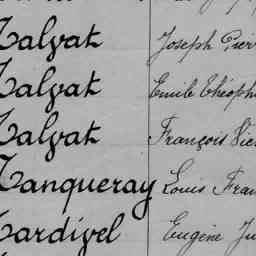 Talvat Joseph Pier
Talvat Emile Théoph
Talvat François Vic
Tanqueray Louis Fran
Tardivel Eugène Ju